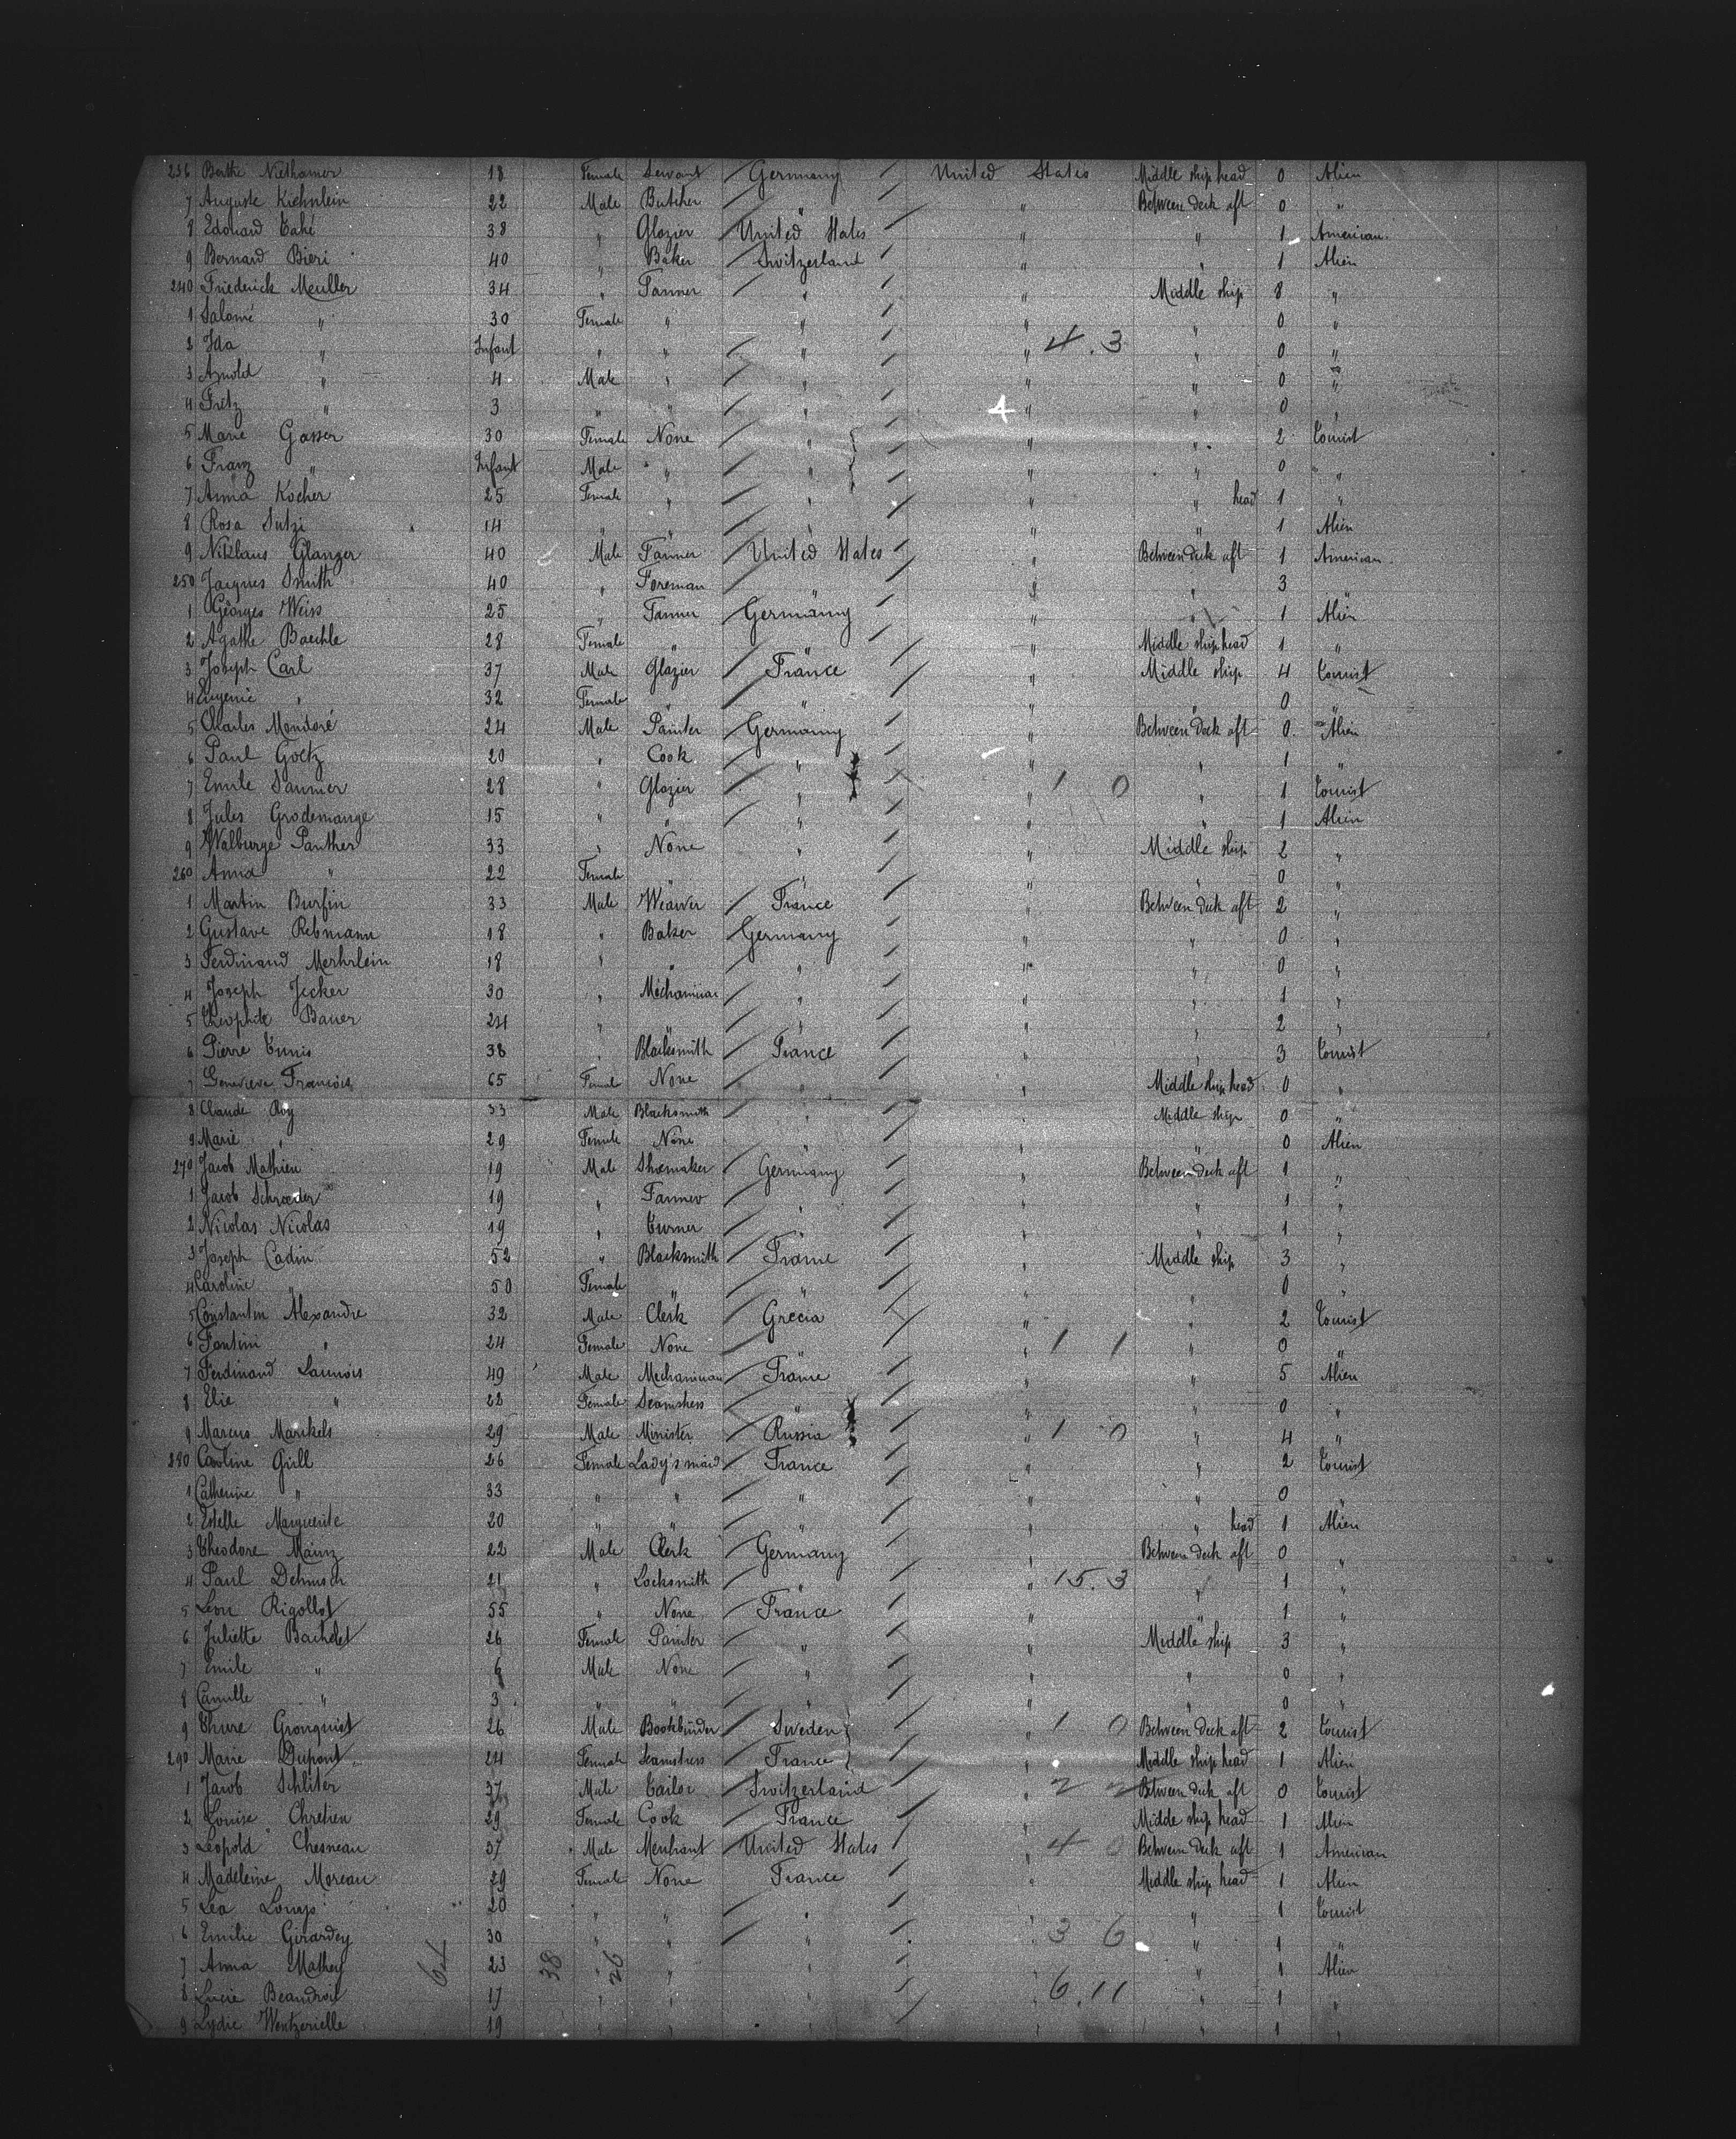 236 Berthe Niethamer 18 Female Servant Germany United States Middle ship head 0 Alien
7 Auguste Kiehnlein 22 Male Butcher " " Between deck aft 0 "
8 Edouard Cahé 38 " Glazier United States " " 1 American
9 Bernard Bieri 40 " Baker Switzerland " " 1 Alien
240 Friederick Meuller 34 " Farmer " " Middle ship 8 "
1 Salomé " 30 Female " " " " 0 "
2 Ida " Infant " " " " 4.3 " 0 "
3 Arnold " 4 Male " " " " 0 "
4 Fritz " 3 " " " " " 0 "
5 Marie Gasser 30 Female None " " " 2 Tourist
6 Franz " Infant Male " " " " 0 "
7 Anna Kocher 25 Female " " " " head 1 "
8 Rosa Sutzi 14 " " " " " 1 Alien
9 Niklaus Glanzer 40 Male Farmer United States " Between deck aft 1 American
250 Jacques Smith 40 " Foreman " " " 3 "
1 Georges Weiss 25 " Farmer Germany " " 1 Alien
2 Agathe Baechle 28 Female " " " Middle ship head 1 "
3 Joseph Carl 37 Male Glazier France " Middle ship 4 Tourist
4 Eugenie " 32 Female " " " " 0 "
5 Charles Mondoré 24 Male Painter Germany " Between deck aft 0 Alien
6 Paul Goetz 20 " Cook " " " 1 "
7 Emile Saunier 28 " Glazier " " 1 0 " 1 Tourist
8 Jules Grodemange 15 " " " " " 1 Alien
9 Walburge Panther 33 " None " " Middle ship 2 "
260 Anna " 22 Female " " " " 0 "
1 Martin Burfin 33 Male Weawer France " Between deck aft 2 "
2 Gustave Rebmann 18 " Baker Germany " " 0 "
3 Ferdinand Merhrlein 18 " " " " " 0 "
4 Joseph Jecker 30 " Mechanician " " " 1 "
5 Theophile Bauer 24 " " " " " 2 "
6 Pierre Tunis 38 " Blacksmith France " " 3 Tourist
7 Genevieve Francois 65 Female None " " Middle ship head 0 "
8 Claude Roy 33 Male Blacksmith " " Middle ship 0 "
9 Marie " 29 Female None " " " 0 Alien
270 Jacob Mathieu 19 Male Shoemaker Germany " Between deck aft 1 "
1 Jacob Schroeder 19 " Farmer " " " 1 "
2 Nicolas Nicolas 19 " Turner " " " 1 "
3 Joseph Cadin 52 " Blacksmith France " Middle ship 3 "
4 Caroline " 50 Female " " " " 0 "
5 Constantin Alexandre 32 Male Clerk Grecia " " 2 Tourist
6 Fontini " 24 Female None " " 1 1 " 0 "
7 Ferdinand Launois 49 Male Mechanician France " " 5 Alien
8 Elie " 22 Female Seamstress " " " 0 "
9 Marcus Marikels 29 Male Minister Russia " 1 0 " 4 "
280 Caroline Grill 26 Female Lady's maid France " " 2 Tourist
1 Catherine " 33 " " " " " 0 "
2 Estelle Marguerite 20 " " " " " head 1 Alien
3 Theodore Mainz 22 Male Clerk Germany " Between deck aft 0 "
4 Paul Dehnisch 21 " Locksmith " " 15.3 " 1 "
5 Leon Rigollot 55 " None France " " 1 "
6 Juliette Bachelet 26 Female Painter " " Middle ship 3 "
7 Emile " 6 Male None " " " 0 "
8 Camille " 3 " " " " " 0 "
9 Thure Gronquist 26 Male Bookbinder Sweden " 1 0 Between deck aft 2 Tourist
290 Marie Dupont 24 Female Seamstress France " Middle ship head 1 Alien
1 Jacob Schliter 37 Male Tailor Switzerland " 2 2 Between deck aft 0 Tourist
2 Louise Chretien 29 Female Cook France " Middle ship head 1 Alien
3 Leopold Chesneau 37 Male Merchant United States " 4 0 Between deck aft 1 American
4 Madeleine Moreau 29 Female None France " Middle ship head 1 Alien
5 Lea Loups 20 " " " " " 1 Tourist
6 Emilie Girardey 30 " " " " 3 6 " 1 "
7 Anna Mathey 64 23 38 " 26 " " " " 1 Alien
8 Lucie Beaudroit 17 " " " " 6.11 " 1 "
9 Lydie Wentzerielle 19 " " " " " 1 "